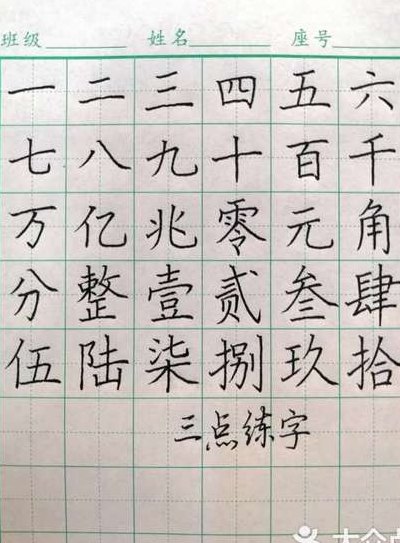 班级 姓名 座号
一二三四五六
七八九十百千
万亿兆零元角
分整壹贰叁肆
伍陆柒捌玖拾
三点练字